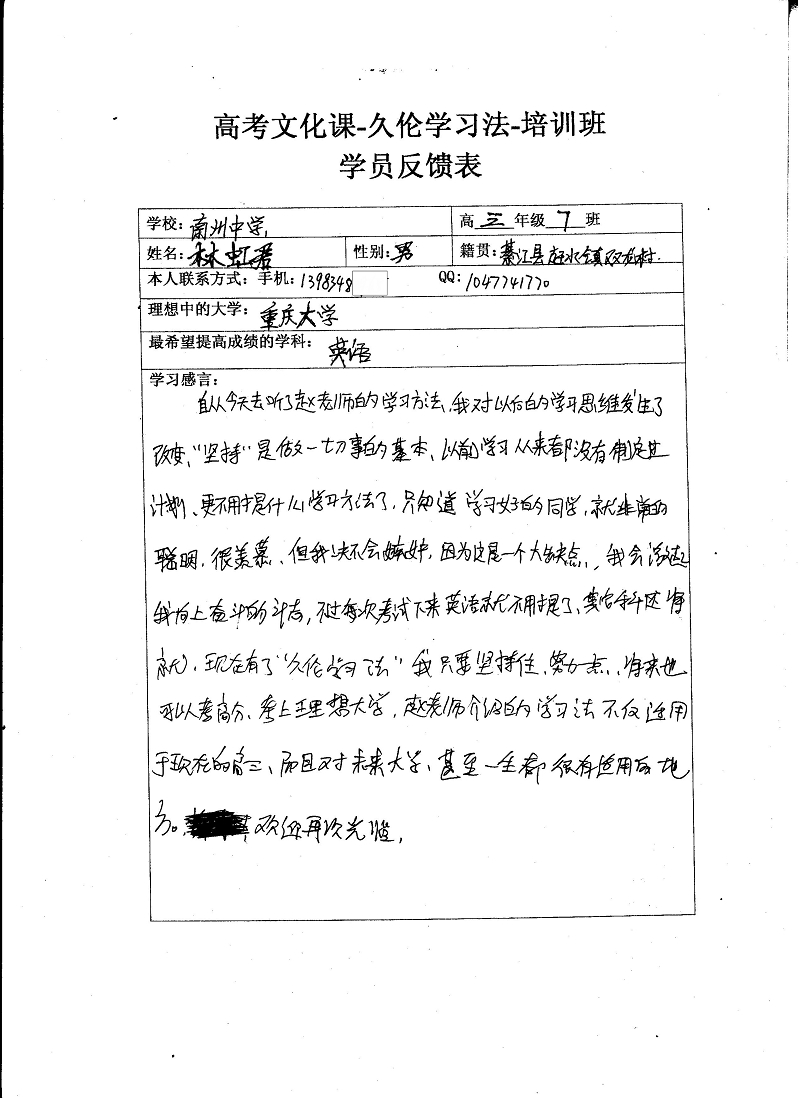 高考文化课-久伦学习法-培训班
学员反馈表
学校：南州中学 高 三 年级 7 班
姓名：林虹君 性别：男 籍贯：綦江县 镇 村.
本人联系方式：手机：1398348 QQ：1047741770
理想中的大学：重庆大学
最希望提高成绩的学科：英语
学习感言：
自从今天去听了赵老师的学习方法，我对以后的学习思维发生了
改变，“坚持”是做一切事的基本、以前学习从来都没有制定过
计划、更不用提什么学习方法了，只知道学习好的同学，就非常的
聪明，很羡慕、但我决不会嫉妒，因为这是一个大缺点，我会
我向上奋斗的斗志，不过每次考试下来英语就不用提了、其它科还将
就，现在有了“久伦学习法”我只要坚持住、努力一点、将来也
可以考高分、考上理想大学，赵老师介绍的学习法不仅适用
于现在的高三、而且对未来大学、甚至一生都很有适用的地
方。欢迎再次光临，